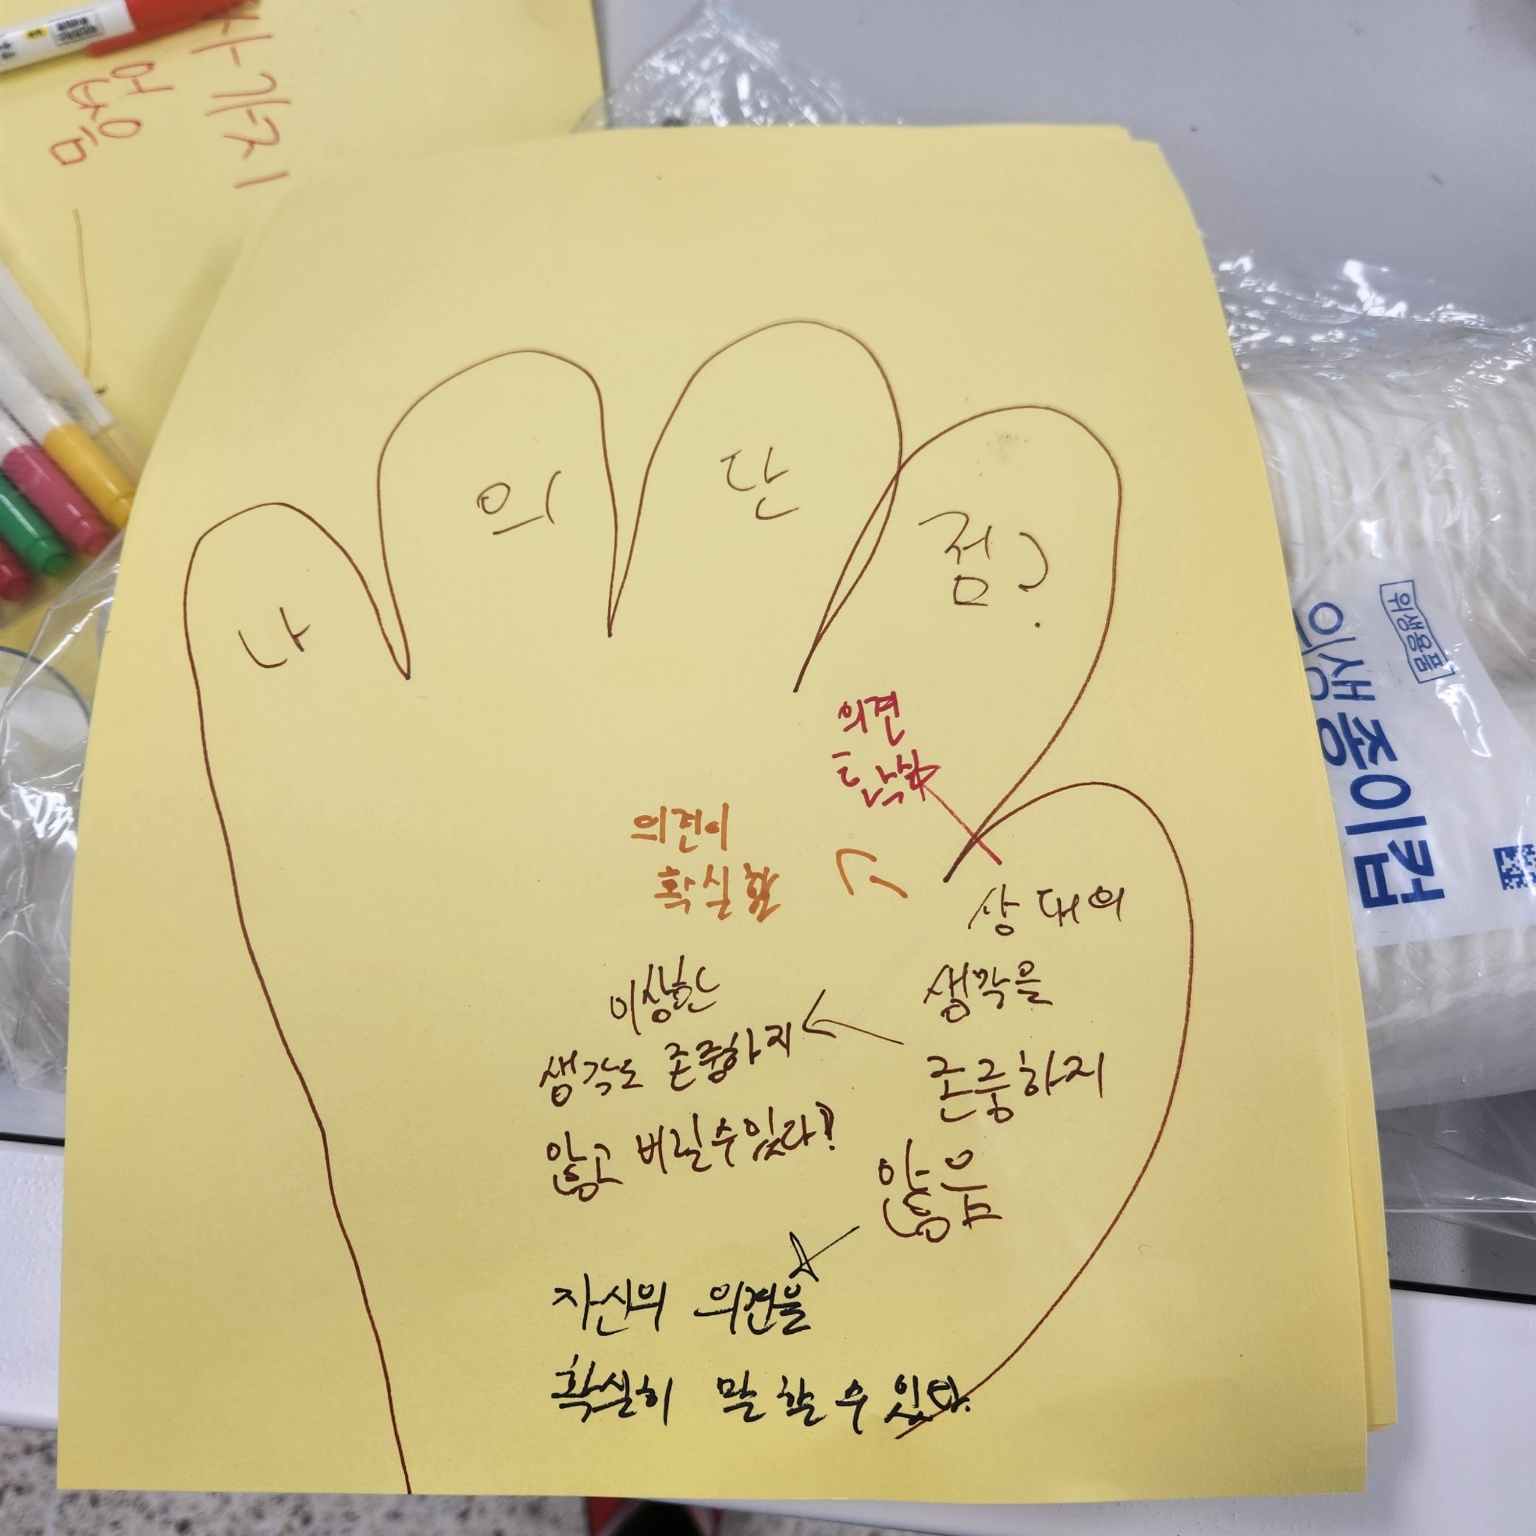 가지
없음
나 의 단 점?
의견
의견이
확실함
상대의
생각을
존중하지
않음
이상한
생각도 존중하지
않고 버릴 수 있다?
자신의 의견을
확실히 말할 수 있다.
위생용품
위생종이컵